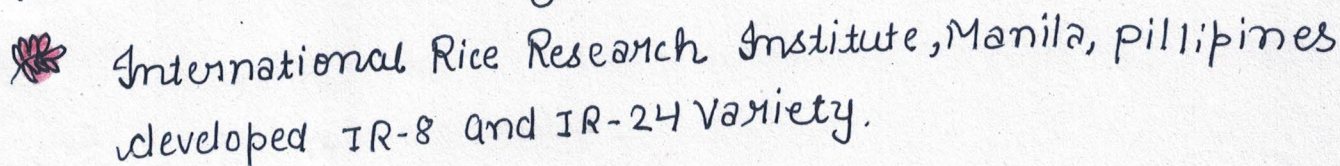 International Rice Research Institute, Manila, pillipines
developed IR-8 and IR-24 Variety.